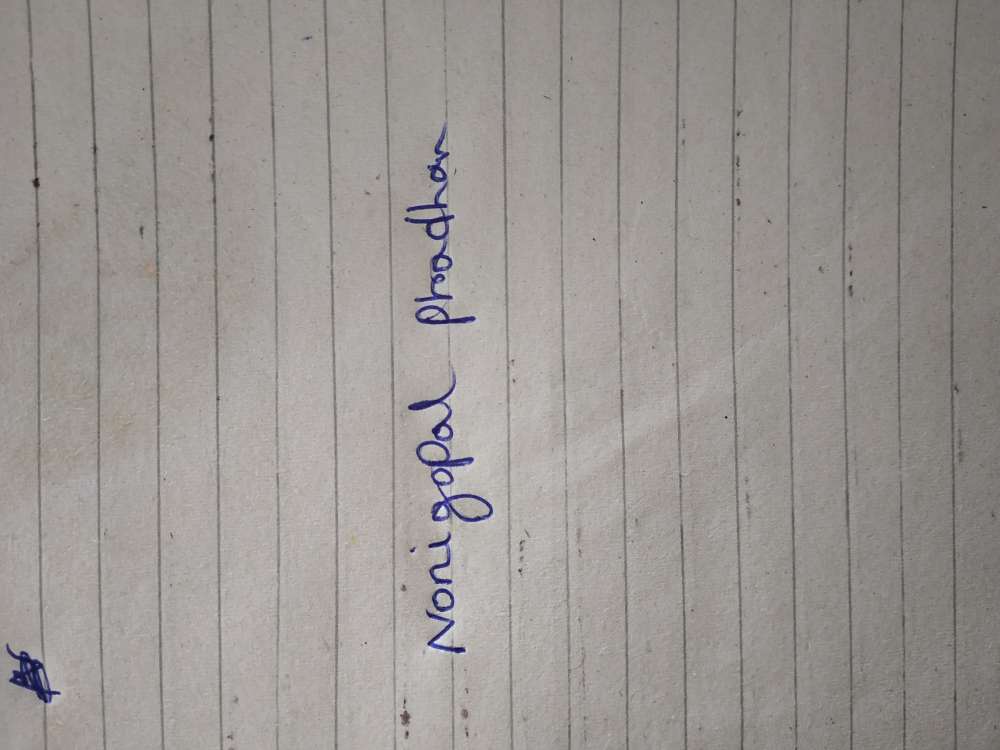 Nonigopal pradhan